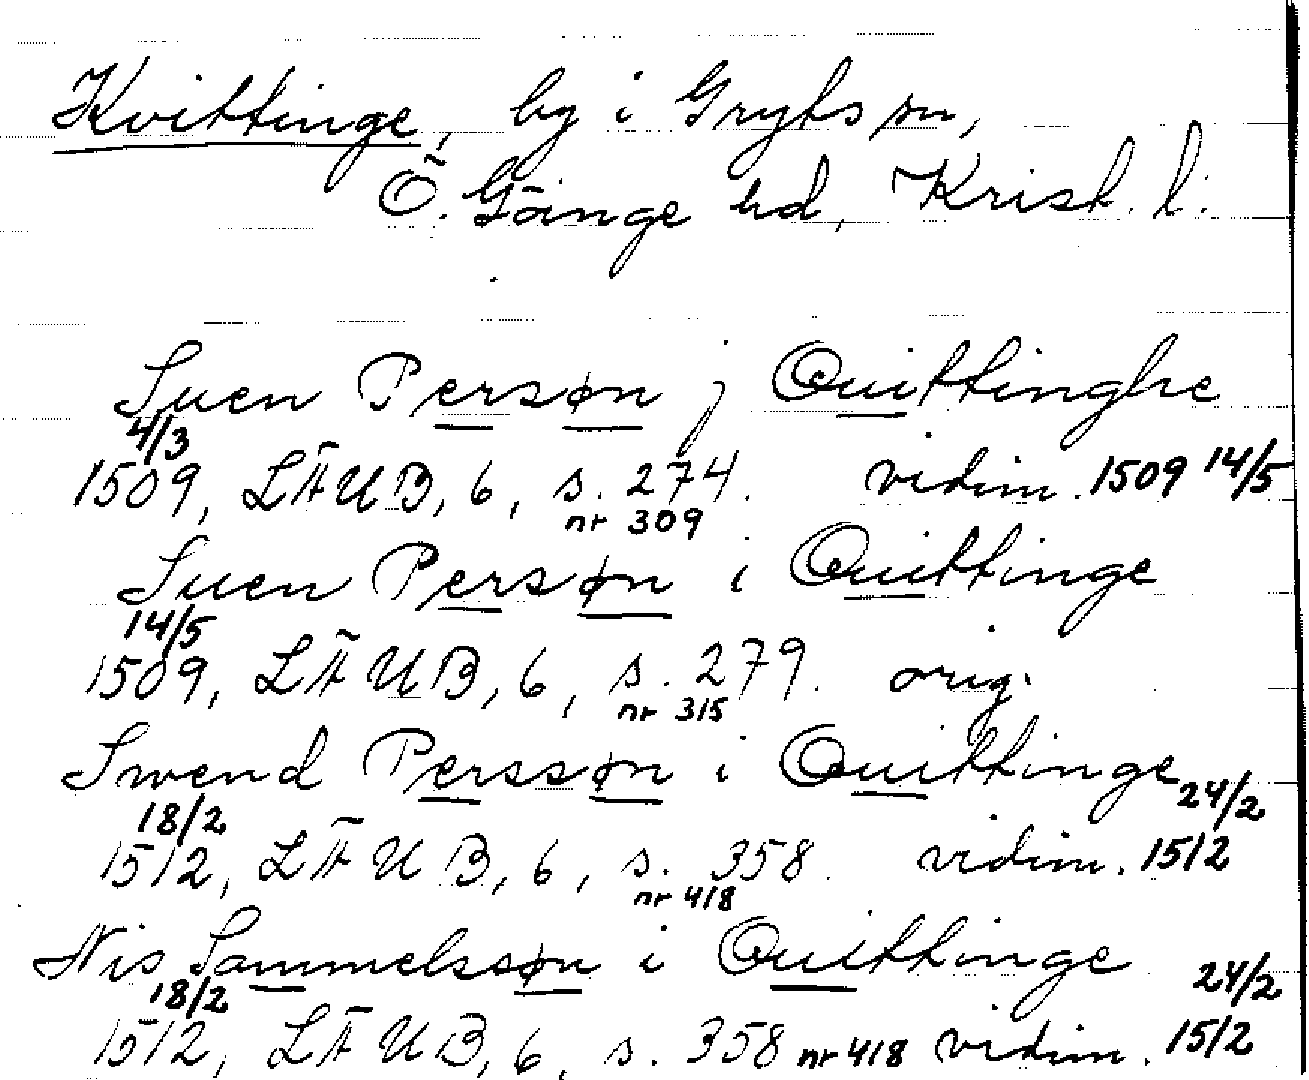 Kvittinge, by i Gryts sn,
Ö. Göinge hd, Krist. l.
Suen Persøn j Quittinghe
4/3
1509, LÄUB, 6, s. 274. vidim. 1509 14/5
nr 309
Suen Persøn i Quittinge
14/5
1509, LÄUB, 6, s. 279. orig.
nr 315
Swend Perssøn i Quittinge 24/2
18/2
1512, LÄUB, 6, s. 358. vidim. 1512
nr 418
Nis Sammelssøn i Quittinge 24/2
18/2
1512, LÄUB, 6, s. 358 nr 418 vidim. 1512